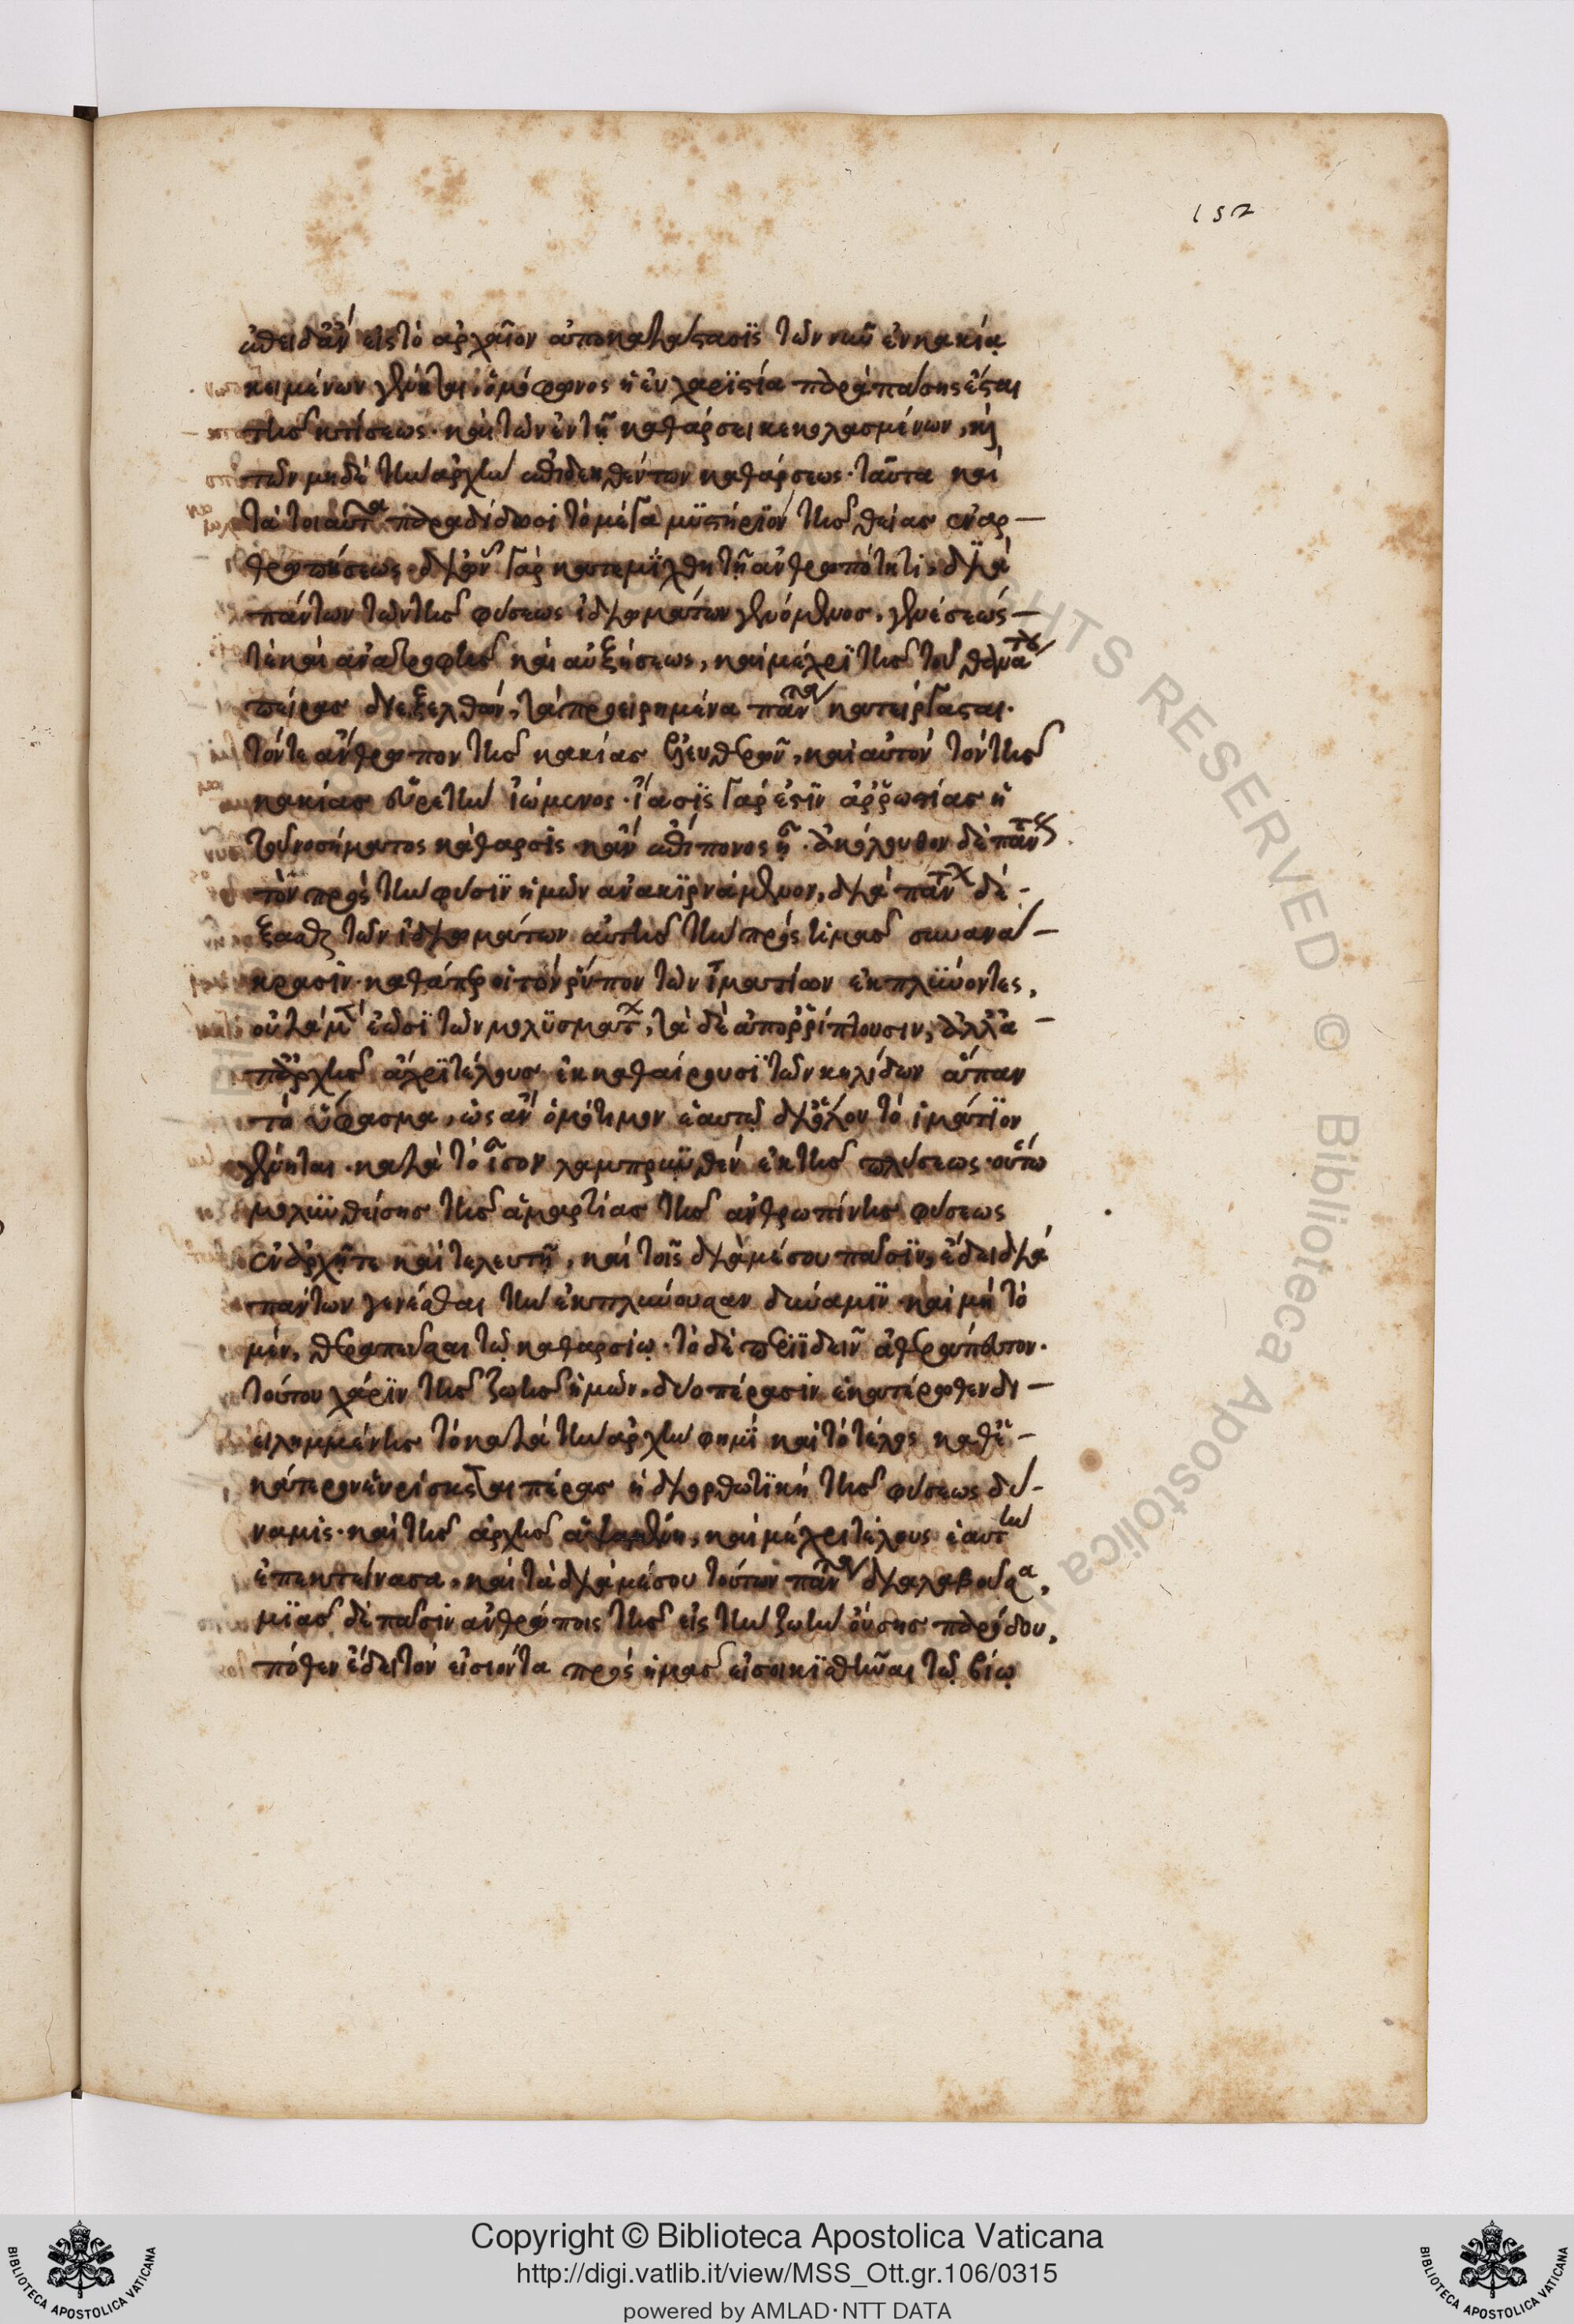 152
ἐπειδὰν εἰς τὸ ἀρχαῖον ἀποκατάστασις τῶν νῦν ἐν κακίᾳ
κειμένων γένηται, ὁμόφωνος ἡ εὐχαριστία παρὰ πάσης ἔσται
τῆς κτίσεως· καὶ τῶν ἐν τῇ καθάρσει κεκολασμένων, καὶ
τῶν μηδὲ τὴν ἀρχὴν ἐπιδεηθέντων καθάρσεως· ταῦτα καὶ
τὰ τοιαῦτα παραδίδωσι τὸ μέγα μυστήριον τῆς θείας ἐναν–
θρωπήσεως· δι' ὧν γὰρ κατεμίχθη τῇ ἀνθρωπότητι, διὰ
πάντων τῶν τῆς φύσεως ἰδιωμάτων γενόμενος, γενέσεώς–
τε καὶ ἀνατροφῆς καὶ αὐξήσεως, καὶ μέχρι τῆς τοῦ θανάτου
πείρας διεξελθών, τὰ προειρημένα πάντα κατείργασται.
τόν τε ἄνθρωπον τῆς κακίας ἐλευθερῶν, καὶ αὐτὸν τὸν τῆς
κακίας εὑρετὴν ἰώμενος· ἴασις γάρ ἐστιν ἀρρωστίας ἡ
τοῦ νοσήματος κάθαρσις κἂν ἐπίπονος ᾖ· ἀκόλουθον δὲ πάντως
τὸν πρὸς τὴν φύσιν ἡμῶν ἀνακιρνάμενον, διὰ πάντων δέ–
ξασθαι τῶν ἰδιωμάτων αὐτῆς τὴν πρὸς ἡμᾶς συνανά–
κρασιν· καθάπερ οἱ τὸν ῥύπον τῶν ἱματίων ἐκπλύνοντες,
οὐ τὰ μὲν ἐῶσι τῶν μολυσμάτων, τὰ δὲ ἀπορρίπτουσιν, ἀλλὰ –
ἀπ' ἀρχῆς ἄχρι τέλους ἐκκαθαίρουσι τῶν κηλίδων ἅπαν
τὸ ὕφασμα, ὡς ἂν ὁμότιμον ἑαυτῷ δι' ὅλου τὸ ἱμάτιον
γένηται κατὰ τὸ ἴσον λαμπρυνθὲν ἐκ τῆς πλύσεως· οὕτω
μολυνθείσης τῆς ἁμαρτίας τῆς ἀνθρωπίνης φύσεως
ἐν ἀρχῇ τε καὶ τελευτῇ, καὶ τοῖς διὰ μέσου πᾶσιν, ἔδει διὰ
πάντων γενέσθαι τὴν ἐκπλύνουσαν δύναμιν καὶ μὴ τὸ
μέν, θεραπεῦσαι τῷ καθαρσίῳ· τὸ δὲ περιϊδεῖν ἀθεράπευτον.
τούτου χάριν τῆς ζωῆς ἡμῶν, δύο πέρασιν ἑκατέρωθεν δι–
ειλημμένης τὸ κατὰ τὴν ἀρχὴν φημὶ καὶ τὸ τέλος καθ' ἑ–
κάτερον εὑρίσκεται πέρας ἡ διορθωτικὴ τῆς φύσεως δύ–
ναμις· καὶ τῆς ἀρχῆς ἁψαμένη, καὶ μέχρι τέλους ἑαυτὴν
ἐπεκτείνασα, καὶ τὰ διὰ μέσου τούτων πάντα διαλαβοῦσα,
μιᾶς δὲ πᾶσιν ἀνθρώποις τῆς εἰς τὴν ζωὴν οὔσης παρόδου,
πόθεν ἔδει τὸν εἰσιόντα πρὸς ἡμᾶς εἰσοικισθῆναι τῷ βίῳ
RIGHTS RESERVED © Biblioteca Apostolica
Copyright © Biblioteca Apostolica Vaticana
http://digi.vatlib.it/view/MSS_Ott.gr.106/0315
powered by AMLAD·NTT DATA
BIBLIOTECA APOSTOLICA VATICANA
BIBLIOTECA APOSTOLICA VATICANA